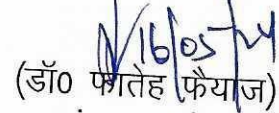 16/05/24
(डॉ0 फातेह फैयाज)